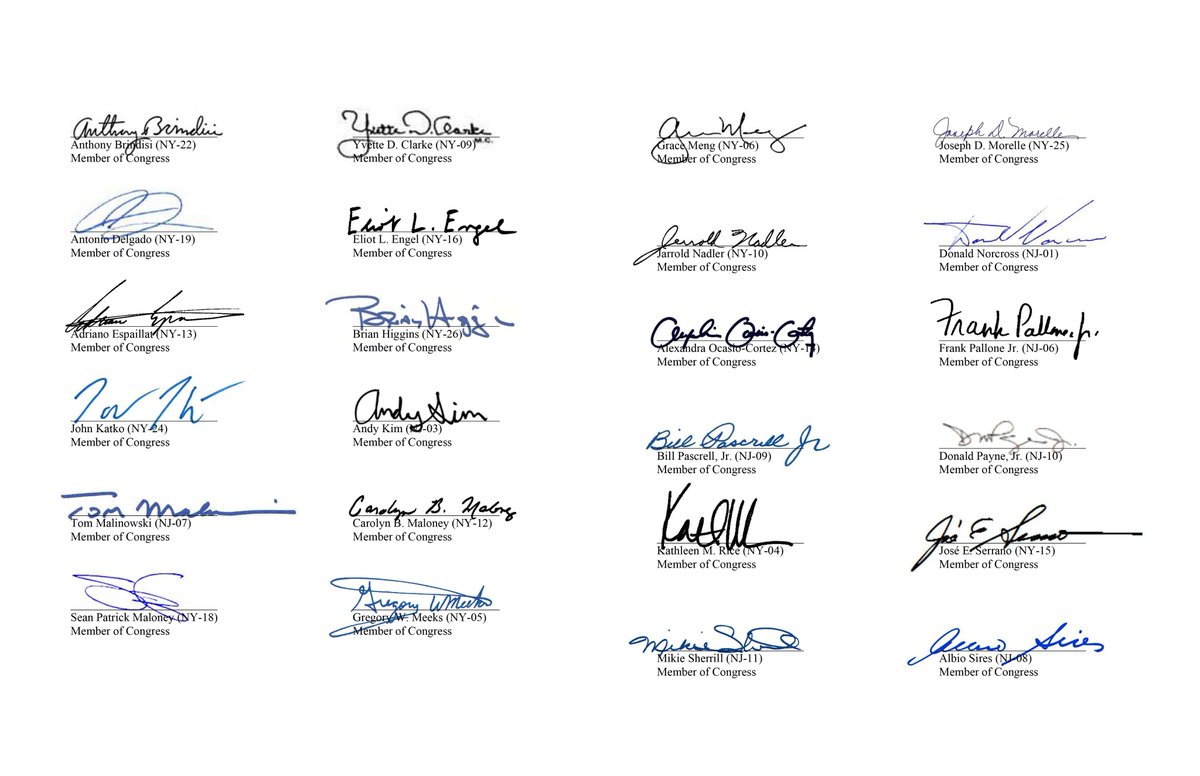 Anthony Brindisi
Anthony Brindisi (NY-22)
Member of Congress
Antonio Delgado (NY-19)
Member of Congress
Adriano Espaillat (NY-13)
Member of Congress
John Katko (NY-24)
Member of Congress
Tom Malinowski (NJ-07)
Member of Congress
Sean Patrick Maloney (NY-18)
Member of Congress
Yvette D. Clarke
M.C.
Yvette D. Clarke (NY-09)
Member of Congress
Eliot L. Engel
Eliot L. Engel (NY-16)
Member of Congress
Brian Higgins
Brian Higgins (NY-26)
Member of Congress
Andy Kim
Andy Kim (NJ-03)
Member of Congress
Carolyn B. Maloney
Carolyn B. Maloney (NY-12)
Member of Congress
Gregory W Meeks
Gregory W. Meeks (NY-05)
Member of Congress
Grace Meng (NY-06)
Member of Congress
Jerrold Nadler
Jarrold Nadler (NY-10)
Member of Congress
Alexandra Ocasio-Cortez (NY-14)
Member of Congress
Bill Pascrell Jr
Bill Pascrell, Jr. (NJ-09)
Member of Congress
Kathleen M. Rice (NY-04)
Member of Congress
Mikie Sherrill
Mikie Sherrill (NJ-11)
Member of Congress
Joseph D. Morelle
Joseph D. Morelle (NY-25)
Member of Congress
Donald Norcross (NJ-01)
Member of Congress
Frank Pallone, Jr.
Frank Pallone Jr. (NJ-06)
Member of Congress
Donald Payne, Jr. (NJ-10)
Member of Congress
José E. Serrano
José E. Serrano (NY-15)
Member of Congress
Albio Sires
Albio Sires (NJ-08)
Member of Congress